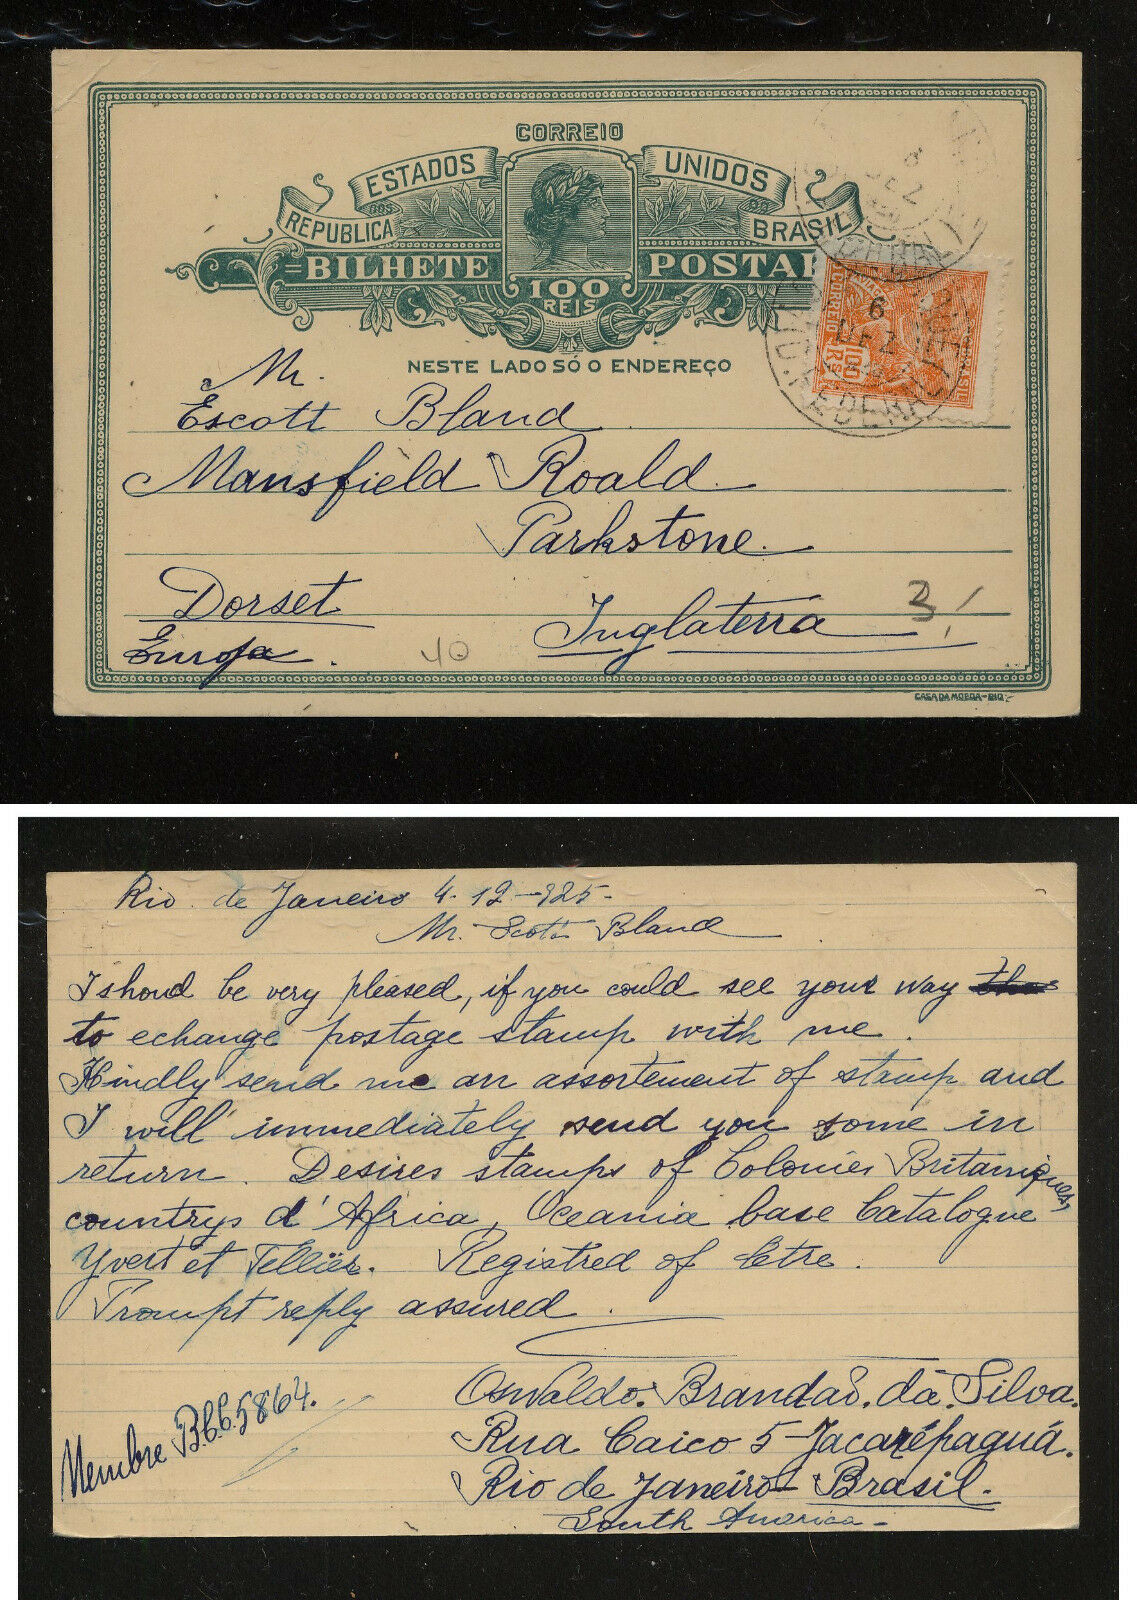 CORREIO
ESTADOS UNIDOS
REPUBLICA DOS DO BRASIL
BILHETE POSTAL
100
REIS
NESTE LADO SÓ O ENDEREÇO
CORREIO
BRASIL
100
RS
6
DEZ
Mr.
Escott Bland
Mansfield Roald
Parkstone
Dorset Inglaterra
Europa.
10
CASA DA MOEDA-RIO
Rio de Janeiro 4-12-925-
Mr. Scott Bland
I shoud be very pleased, if you could see your way
to echange postage stamp with me.
Kindly send me an assortement of stamp and
I will immediately send you some in
return. Desires stamps of Colonies Britaniques
countrys d'Africa, Oceania base Catalogue
Yvert et Tellier. Registred of letre.
Prompt reply assured.
Oswaldo. Brandaõ. da Silva.
Membre B.C.C. 5864.
Rua Caico 5-Jacarépaguá.
Rio de Janeiro-Brasil.
South America-